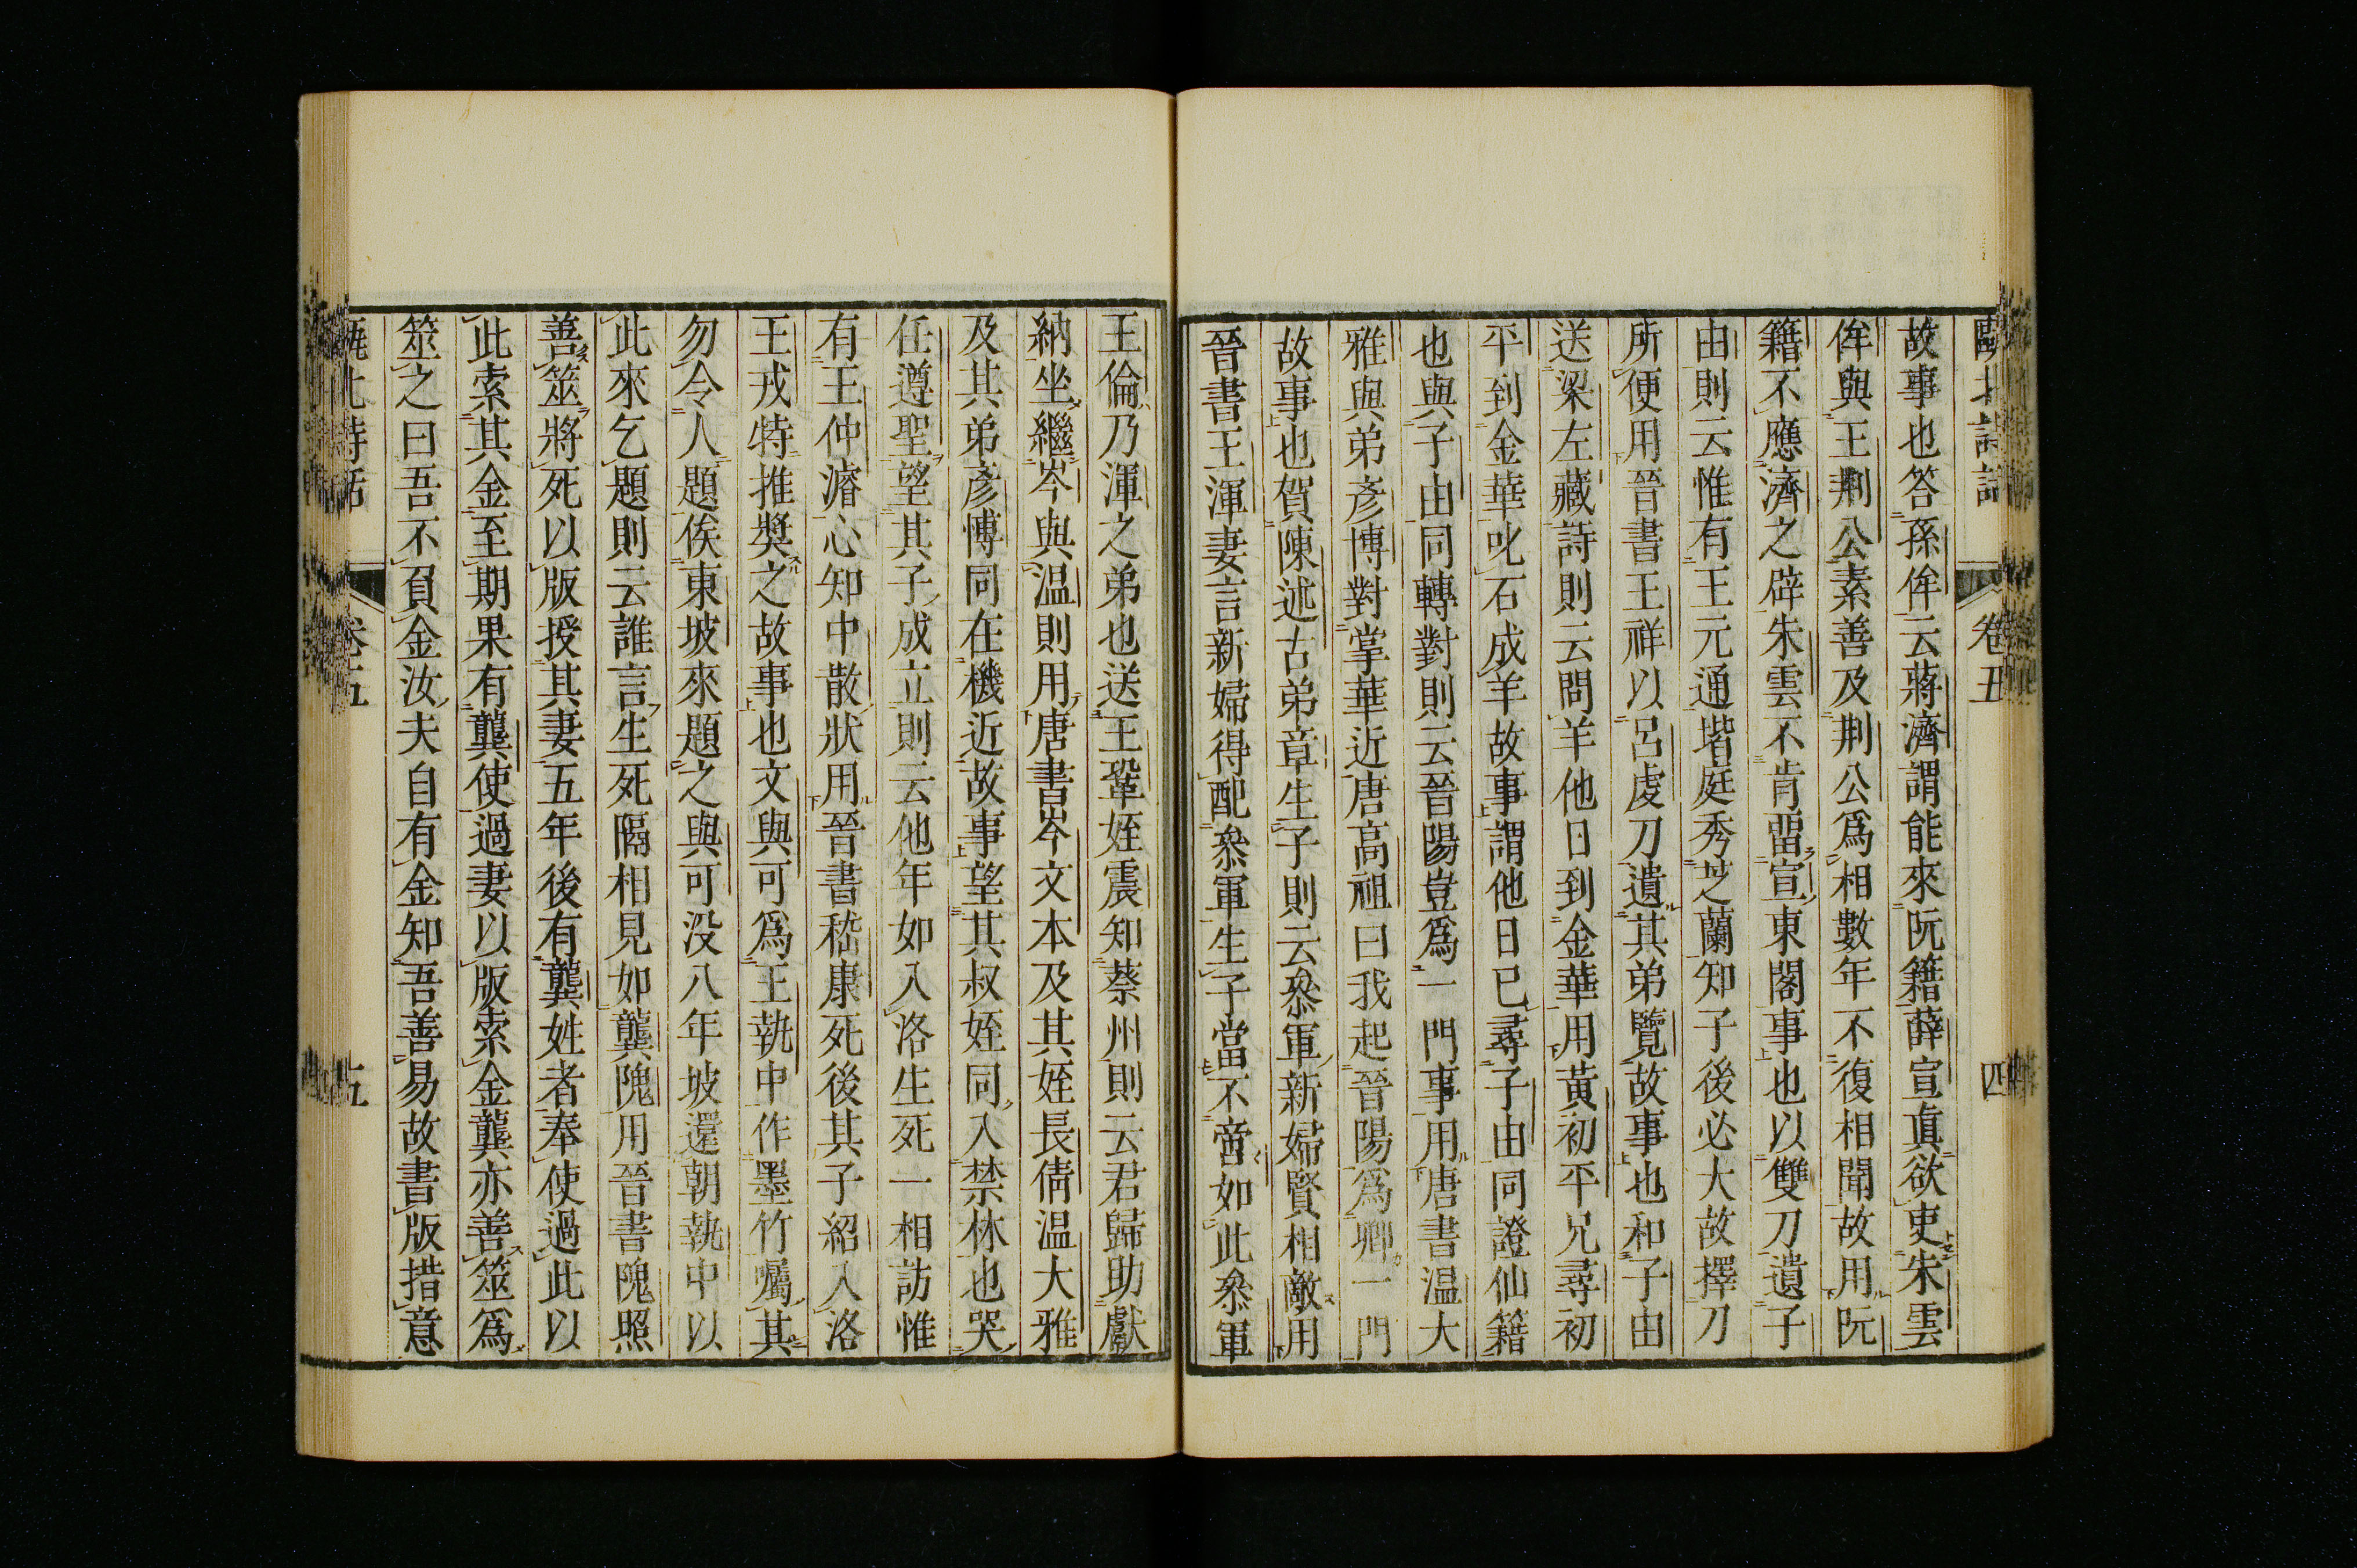 甌北詩話 卷五 四
故事也答孫侔云蔣濟謂能來阮籍薛宣眞欲吏朱雲
侔與王荆公素善及荆公爲相數年不復相聞故用阮
籍不應濟之辟朱雲不肯畱宣東閣事也以雙刀遺子
由則云惟有王元通堦庭秀芝蘭知子後必大故擇刀
所便用晉書王祥以呂虔刀遺其弟覽故事也和子由
送梁左藏詩則云問羊他日到金華用黃初平兄尋初
平到金華叱石成羊故事謂他日已尋子由同證仙籍
也與子由同轉對則云晉陽豈爲一門事用唐書温大
雅與弟彥博對掌華近唐高祖曰我起晉陽爲卿一門
故事也賀陳述古弟章生子則云叅軍新婦賢相敵用
晉書王渾妻言新婦得配叅軍生子當不啻如此叅軍
王倫乃渾之弟也送王鞏姪震知蔡州則云君歸助獻
納坐繼岑與温則用唐書岑文本及其姪長倩温大雅
及其弟彥博同在機近故事望其叔姪同入禁林也哭
任遵聖望其子成立則云他年如入洛生死一相訪惟
有王仲濬心知中散狀用晉書嵇康死後其子紹入洛
王戎特推獎之故事也文與可爲王執中作墨竹囑其
勿令人題俟東坡來題之與可没八年坡還朝執中以
此來乞題則云誰言生死隔相見如龔隗用晉書隗照
善筮將死以版授其妻五年後有龔姓者奉使過此以
此索其金至期果有龔使過妻以版索金龔亦善筮爲
筮之曰吾不負金汝夫自有金知吾善易故書版措意
甌北詩話 卷五 五